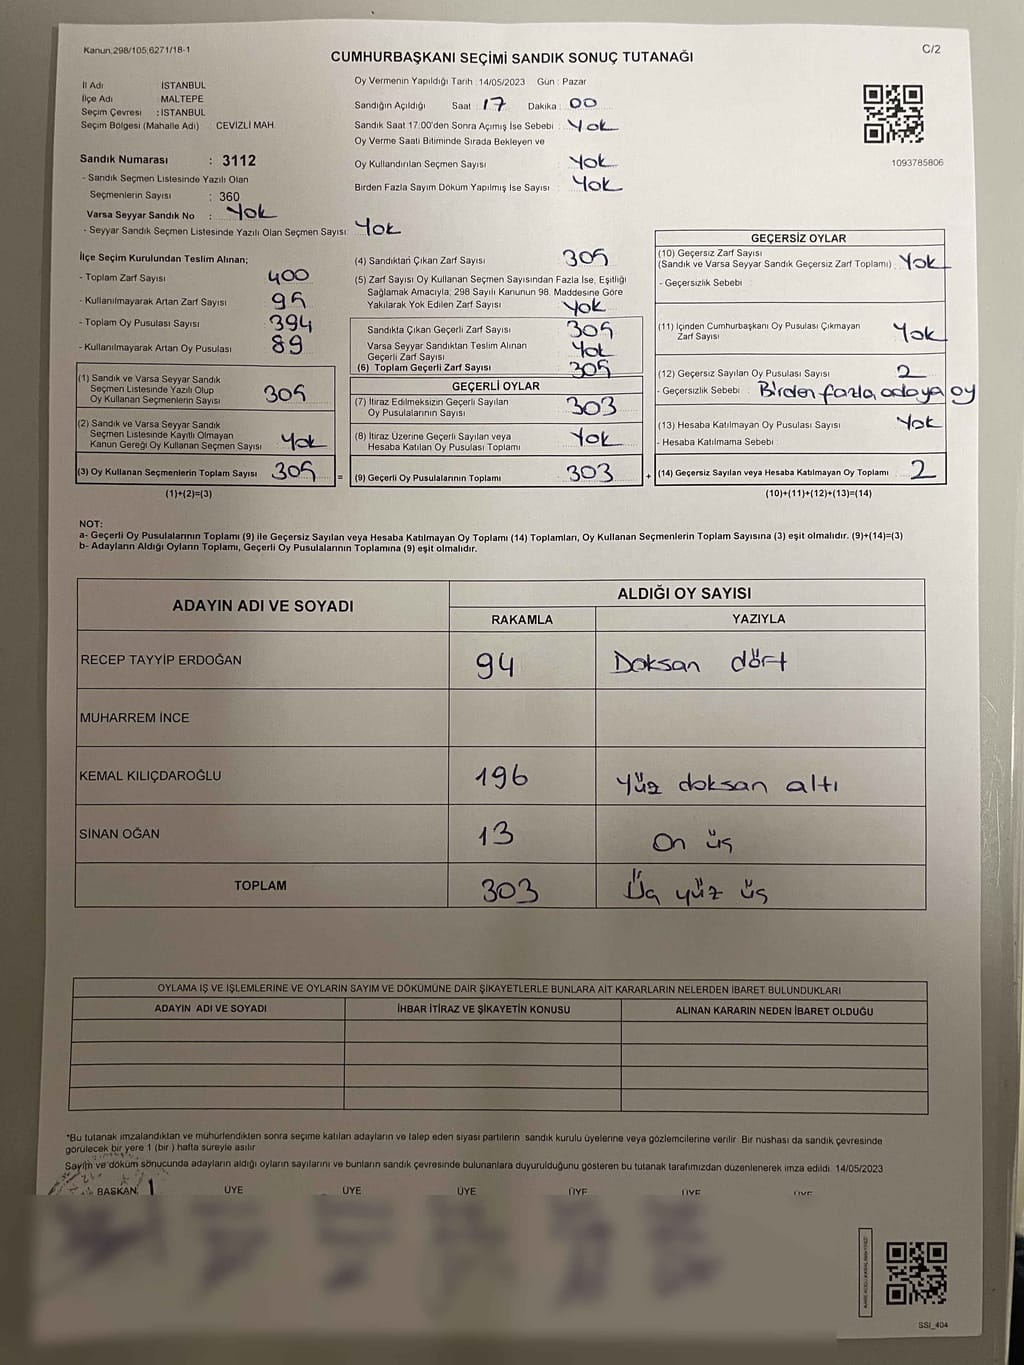 Kanun.298/105;6271/18-1
C/2
CUMHURBAŞKANI SEÇİMİ SANDIK SONUÇ TUTANAĞI
İl Adı İSTANBUL
İlçe Adı MALTEPE
Seçim Çevresi : İSTANBUL
Seçim Bölgesi (Mahalle Adı) . CEVİZLİ MAH.
Sandık Numarası : 3112
- Sandık Seçmen Listesinde Yazılı Olan
Seçmenlerin Sayısı : 360
Varsa Seyyar Sandık No : Yok
- Seyyar Sandık Seçmen Listesinde Yazılı Olan Seçmen Sayısı: Yok
Oy Vermenin Yapıldığı Tarih : 14/05/2023 Gün : Pazar
Sandığın Açıldığı Saat : 17 Dakika : 00
Sandık Saat 17:00'den Sonra Açımış İse Sebebi : Yok
Oy Verme Saati Bitiminde Sırada Bekleyen ve
Oy Kullandırılan Seçmen Sayısı Yok
Birden Fazla Sayım Döküm Yapılmış İse Sayısı : Yok
1093785806
İlçe Seçim Kurulundan Teslim Alınan;
- Toplam Zarf Sayısı : 400
- Kullanılmayarak Artan Zarf Sayısı : 95
- Toplam Oy Pusulası Sayısı : 394
- Kullanılmayarak Artan Oy Pusulası : 89
(1) Sandık ve Varsa Seyyar Sandık
Seçmen Listesinde Yazılı Olup
Oy Kullanan Seçmenlerin Sayısı 305
(2) Sandık ve Varsa Seyyar Sandık
Seçmen Listesinde Kayıtlı Olmayan
Kanun Gereği Oy Kullanan Seçmen Sayısı : Yok
(3) Oy Kullanan Seçmenlerin Toplam Sayısı : 305
(1)+(2)=(3)
(4) Sandıktan Çıkan Zarf Sayısı : 305
(5) Zarf Sayısı Oy Kullanan Seçmen Sayısından Fazla İse, Eşitliği
Sağlamak Amacıyla, 298 Sayılı Kanunun 98. Maddesine Göre
Yakılarak Yok Edilen Zarf Sayısı : Yok
Sandıkta Çıkan Geçerli Zarf Sayısı : 305
Varsa Seyyar Sandıktan Teslim Alınan
Geçerli Zarf Sayısı : Yok
(6) Toplam Geçerli Zarf Sayısı : 305
GEÇERLİ OYLAR
(7) İtiraz Edilmeksizin Geçerli Sayılan
Oy Pusulalarının Sayısı : 303
(8) İtiraz Üzerine Geçerli Sayılan veya
Hesaba Katılan Oy Pusulası Toplamı : Yok
= (9) Geçerli Oy Pusulalarının Toplamı : 303
GEÇERSİZ OYLAR
(10) Geçersız Zarf Sayısı
(Sandık ve Varsa Seyyar Sandık Geçersiz Zarf Toplamı) : Yok
- Geçersızlik Sebebi :
(11) İçinden Cumhurbaşkanı Oy Pusulası Çıkmayan
Zarf Sayısı : Yok
(12) Geçersız Sayılan Oy Pusulası Sayısı : 2
- Geçersızlik Sebebi : Birden fazla adaya oy
(13) Hesaba Katılmayan Oy Pusulası Sayısı : Yok
- Hesaba Katılmama Sebebi :
+ (14) Geçersiz Sayılan veya Hesaba Katılmayan Oy Toplamı : 2
(10)+(11)+(12)+(13)=(14)
NOT:
a- Geçerli Oy Pusulalarının Toplamı (9) ile Geçersiz Sayılan veya Hesaba Katılmayan Oy Toplamı (14) Toplamları, Oy Kullanan Seçmenlerin Toplam Sayısına (3) eşit olmalıdır. (9)+(14)=(3)
b- Adayların Aldığı Oyların Toplamı, Geçerli Oy Pusulalarının Toplamına (9) eşit olmalıdır.
ADAYIN ADI VE SOYADI ALDIĞI OY SAYISI
RAKAMLA YAZIYLA
RECEP TAYYİP ERDOĞAN 94 Doksan dört
MUHARREM İNCE
KEMAL KILIÇDAROĞLU 196 Yüz doksan altı
SİNAN OĞAN 13 On üç
TOPLAM 303 Üç yüz üç
OYLAMA İŞ VE İŞLEMLERİNE VE OYLARIN SAYIM VE DÖKÜMÜNE DAİR ŞİKAYETLERLE BUNLARA AİT KARARLARIN NELERDEN İBARET BULUNDUKLARI
ADAYIN ADI VE SOYADI İHBAR İTİRAZ VE ŞİKAYETİN KONUSU ALINAN KARARIN NEDEN İBARET OLDUĞU
*Bu tutanak imzalandıktan ve mühürlendikten sonra seçime katılan adayların ve talep eden siyasi partilerin sandık kurulu üyelerine veya gözlemcilerine verilir. Bir nüshası da sandık çevresinde
görülecek bir yere 1 (bir ) hafta süreyle asılır
Sayım ve döküm sonucunda adayların aldığı oyların sayılarını ve bunların sandık çevresinde bulunanlara duyurulduğunu gösteren bu tutanak tarafımızdan düzenlenerek imza edildi. 14/05/2023
BAŞKAN ÜYE ÜYE ÜYE ÜYE ÜYE ÜYE
SSI_404